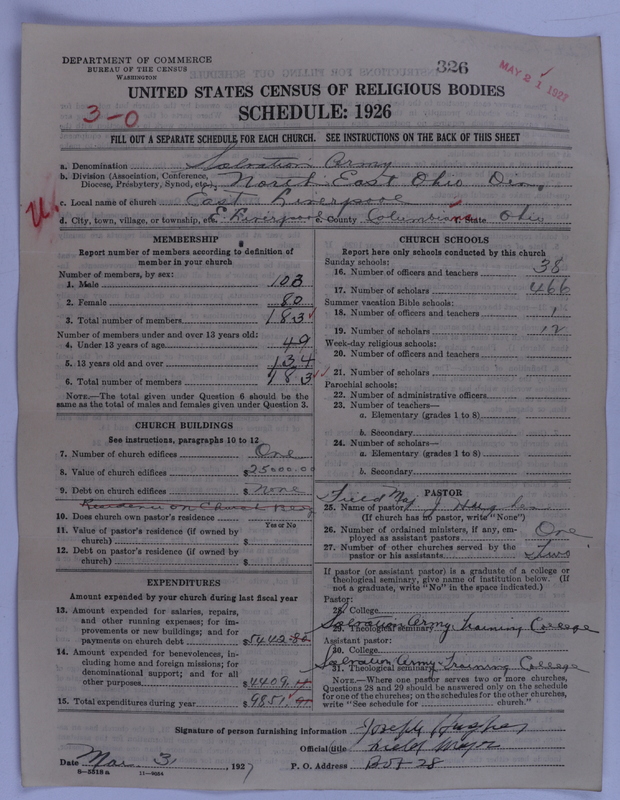 DEPARTMENT OF COMMERCE
BUREAU OF THE CENSUS
WASHINGTON
326
MAY 21 1927
UNITED STATES CENSUS OF RELIGIOUS BODIES
3-0
SCHEDULE: 1926
FILL OUT A SEPARATE SCHEDULE FOR EACH CHURCH. SEE INSTRUCTIONS ON THE BACK OF THIS SHEET
a. Denomination Salvation Army
b. Division (Association, Conference, Diocese, Presbytery, Synod, etc.) North East Ohio Div.
c. Local name of church East Liverpool
d. City, town, village, or township, etc. E Liverpool e. County Columbiana State Ohio
MEMBERSHIP
Report number of members according to definition of
member in your church
Number of members, by sex:
1. Male 103
2. Female 80
3. Total number of members 183
Number of members under and over 13 years old:
4. Under 13 years of age 49
5. 13 years old and over 134
6. Total number of members 183
NOTE.—The total given under Question 6 should be the
same as the total of males and females given under Question 3.
CHURCH BUILDINGS
See instructions, paragraphs 10 to 12
7. Number of church edifices One
8. Value of church edifices $25000.00
9. Debt on church edifices $ None
10. Does church own pastor's residence
Yes or No
11. Value of pastor's residence (if owned by
church) $
12. Debt on pastor's residence (if owned by
church) $
EXPENDITURES
Amount expended by your church during last fiscal year
13. Amount expended for salaries, repairs,
and other running expenses; for im-
provements or new buildings; and for
payments on church debt $5442
14. Amount expended for benevolences, in-
cluding home and foreign missions; for
denominational support; and for all
other purposes $4409
15. Total expenditures during year $9851
CHURCH SCHOOLS
Report here only schools conducted by this church
Sunday schools:
16. Number of officers and teachers 38
17. Number of scholars 466
Summer vacation Bible schools:
18. Number of officers and teachers 1
19. Number of scholars 12
Week-day religious schools:
20. Number of officers and teachers
21. Number of scholars
Parochial schools:
22. Number of administrative officers
23. Number of teachers—
a. Elementary (grades 1 to 8)
b. Secondary
24. Number of scholars—
a. Elementary (grades 1 to 8)
b. Secondary
PASTOR
25. Name of pastor Field Maj J
(If church has no pastor, write "None")
26. Number of ordained ministers, if any, em-
ployed as assistant pastors One
27. Number of other churches served by the
pastor or his assistants Two
If pastor (or assistant pastor) is a graduate of a college or
theological seminary, give name of institution below. (If
not a graduate, write "No" in the space indicated.)
Pastor:
28. College
29. Theological seminary Salvation Army Training College
Assistant pastor:
30. College
31. Theological seminary Salvation Army Training College
NOTE.—Where one pastor serves two or more churches,
Questions 28 and 29 should be answered only on the schedule
for one of the churches; on the schedules for the other churches,
write "See schedule for church."
Signature of person furnishing information Joseph Hughes
Official title Field Major
Date Mar 31, 1927 P. O. Address Box 28
8-5518a 11-9064